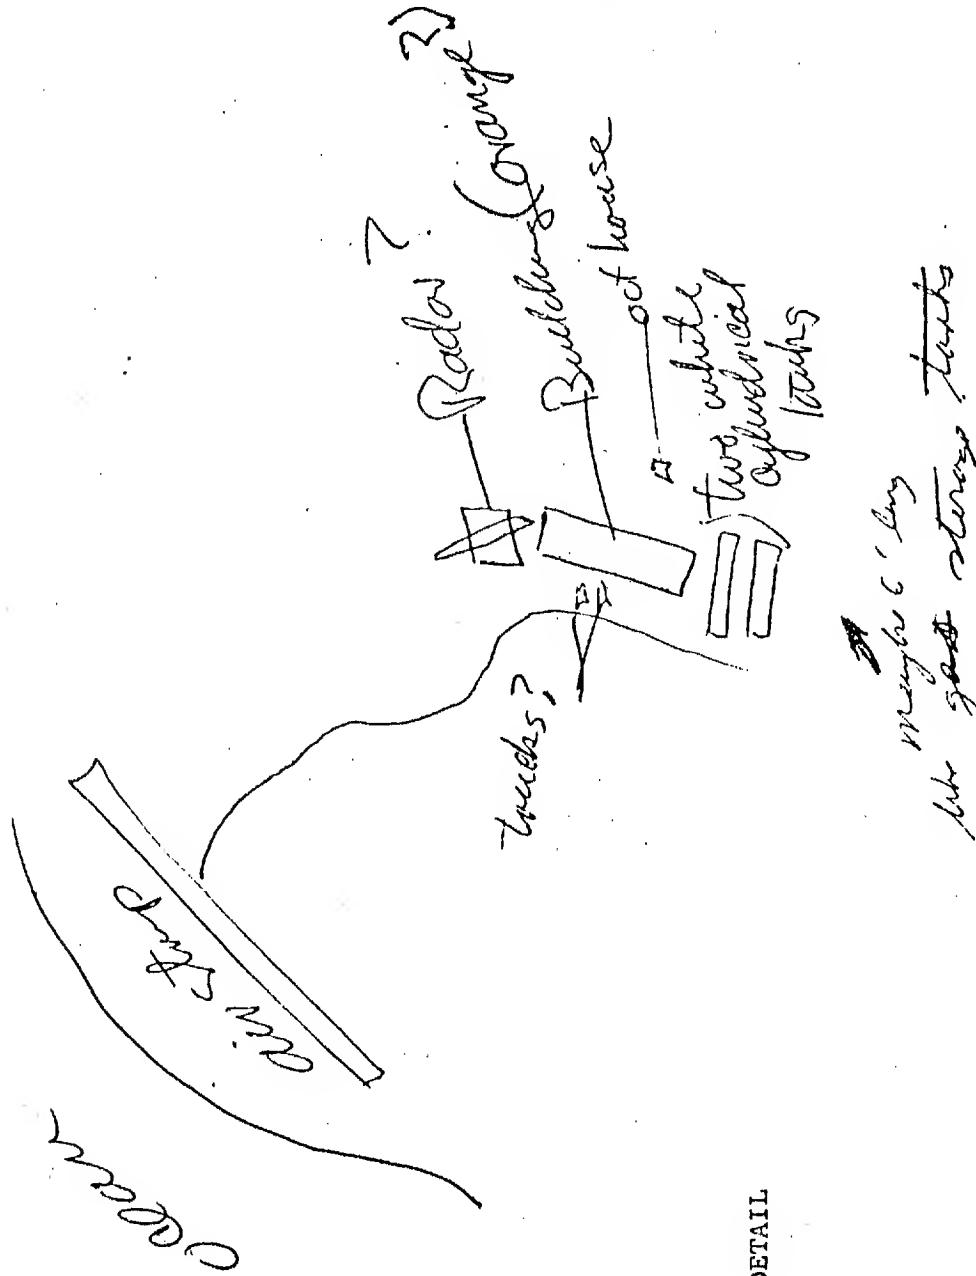 Ocean
air strip
trucks?
Radar ?
Building (orange ?)
out house
two white
cylindrical
tanks
maybe 6' long
like gas storage tanks
DETAIL